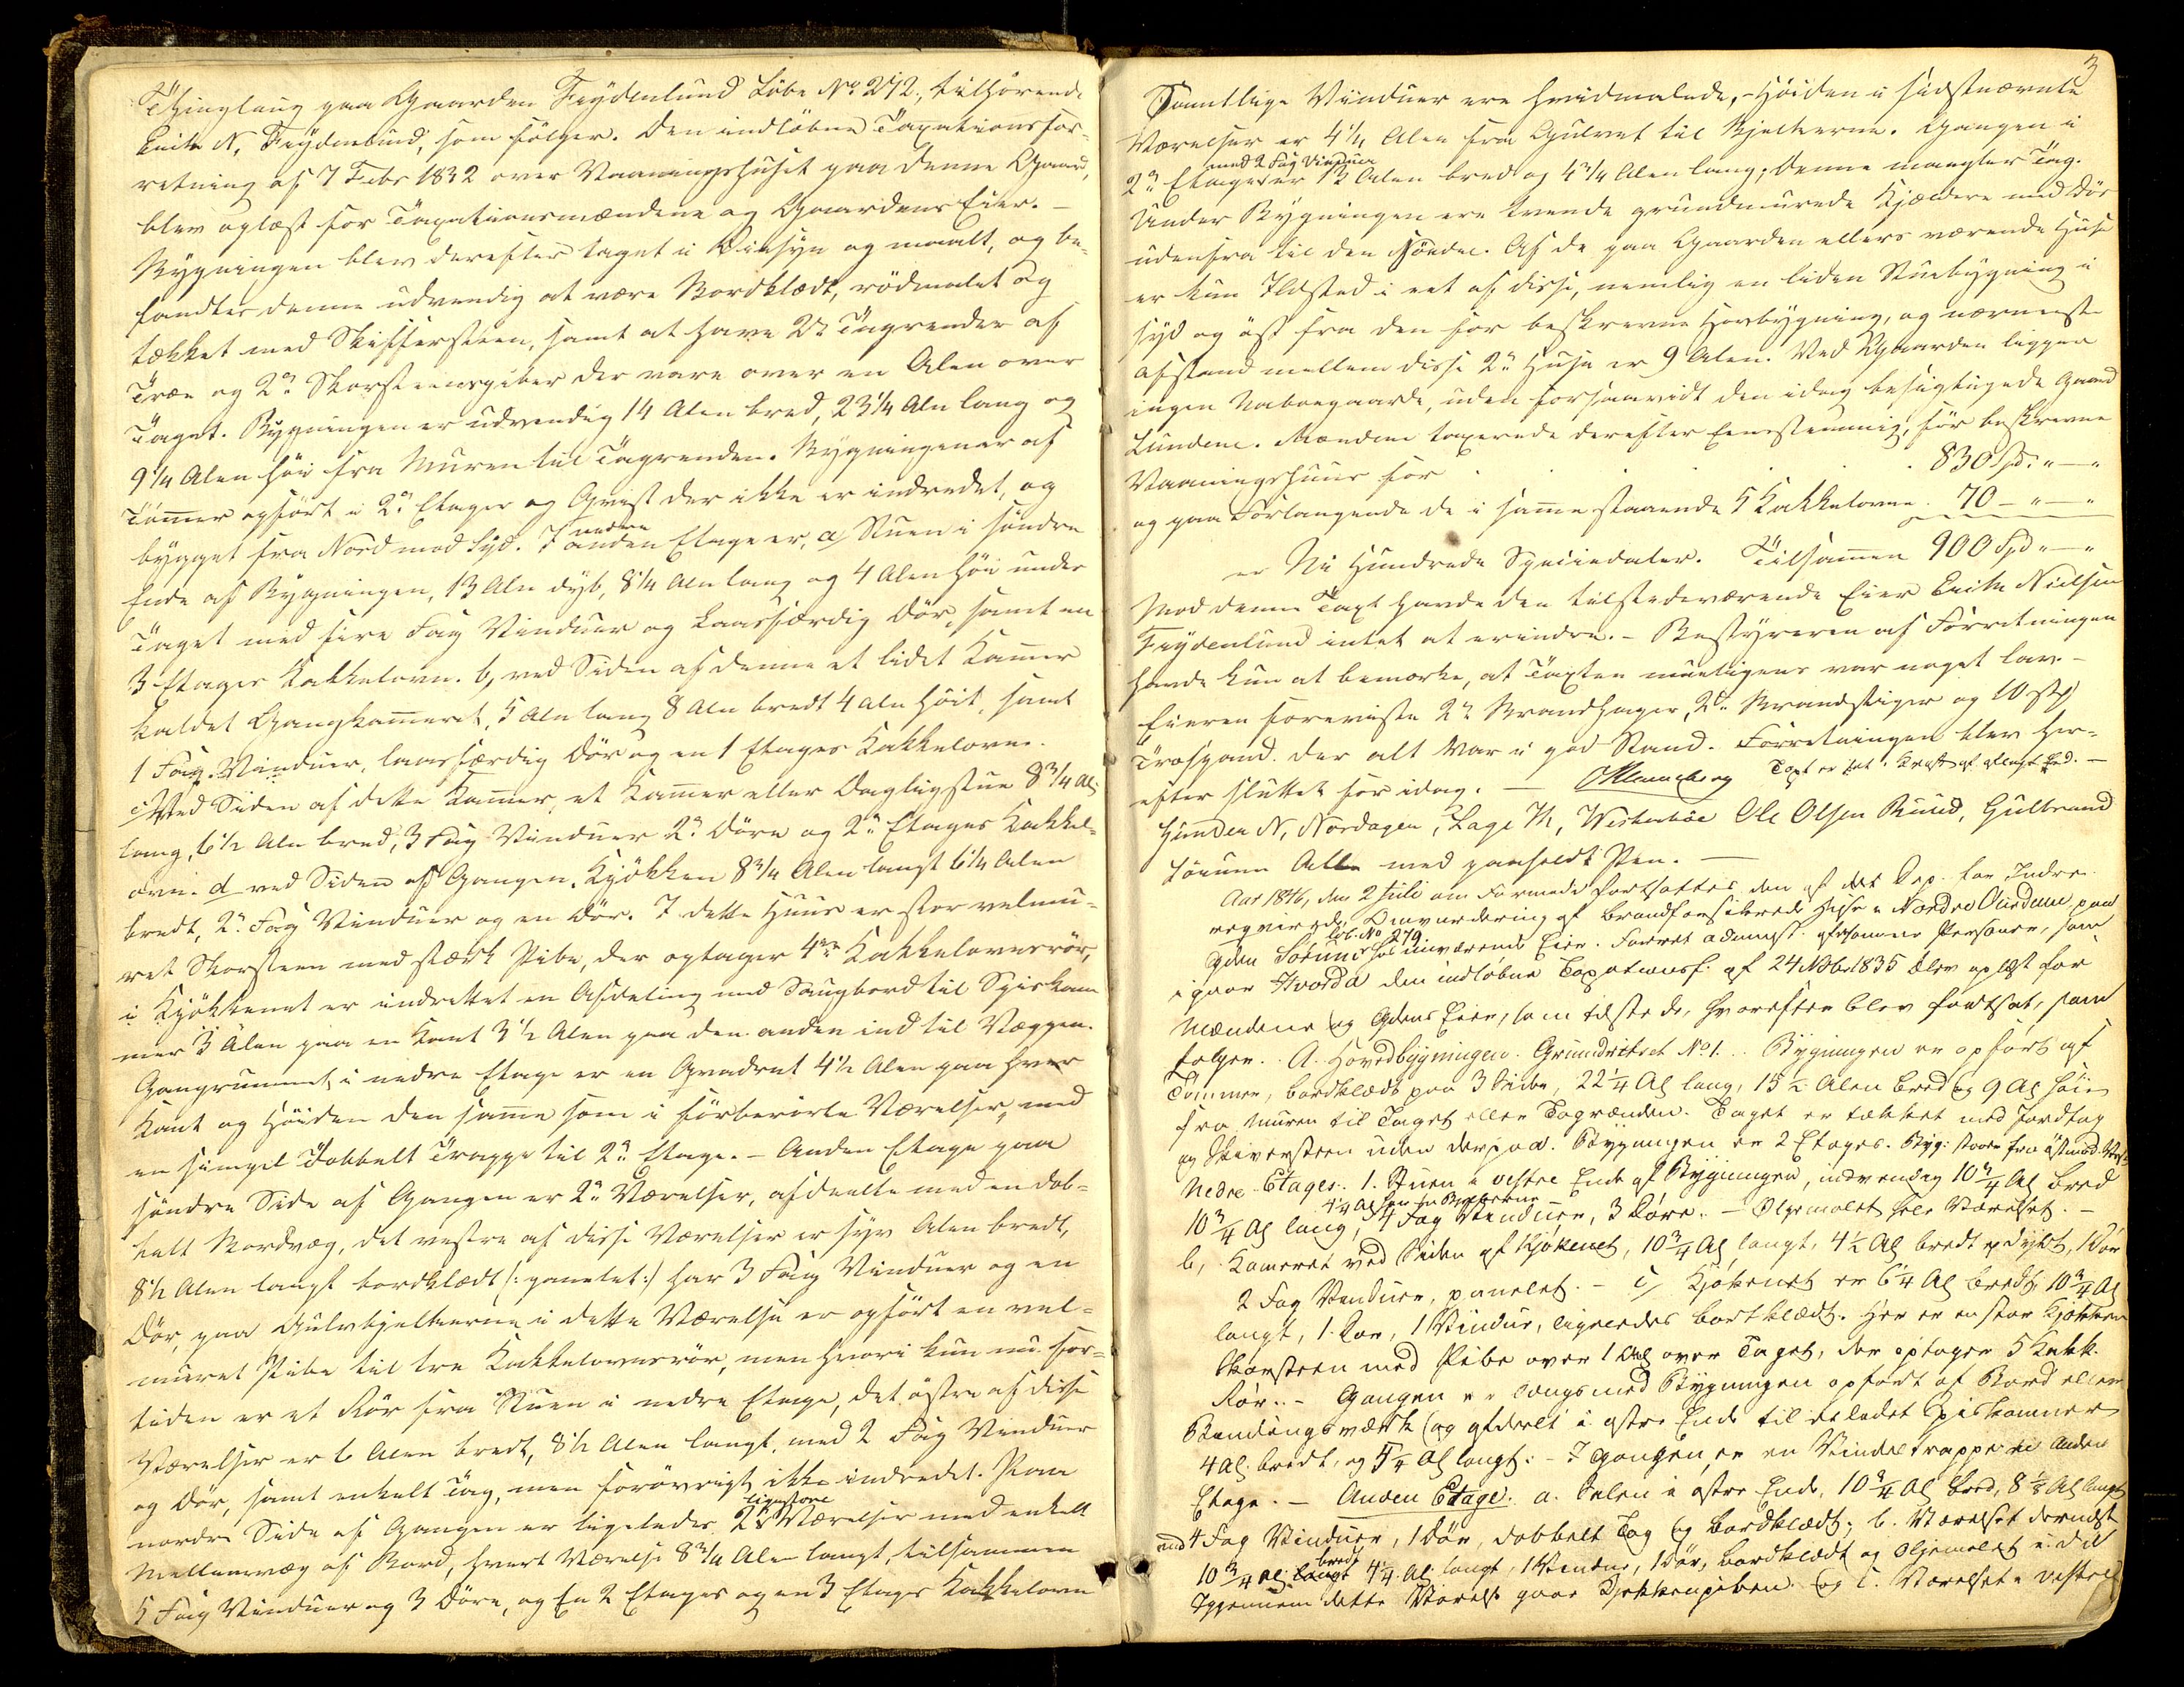 Thinglaug paa Gaarden Frydenlund Løbe No 272, tilhørende
Erik N. Frydenlund, som følger. Den indløbne Taxationsfor-
retning af 7 Febr 1832 over Vaaningshuset paa denne Gaard,
blev oplæst for Taxationsmændene og Gaardens Eier. -
Bygningen blev derefter taget i Øiesyn og maalt, og be-
fandtes denne udvendig at være Bordklædt, rødmalet og
tækket med Skiffersteen, samt at have 2de Tagrender af
Træe og 2de Skorsteenspiber der vare over en Alen over
Taget. Bygningen er udvendig 14 Alen bred, 23 1/4 Aln lang og
9 1/4 Alen høi fra Muren til Tagrenden. Bygningen er af
Tømmer opført i 2de Etager og Qvist der ikke er indredet, og
nedre
bygget fra Nord mod Syd. I anden Etage er, a) Stuen i søndre
Ende af Bygningen, 13 Aln dyb, 8 1/4 Aln lang og 4 Alen høi under
Taget med fire Fag Vinduer og laasfærdig Dør, samt en
3 Etages Kakkelovn. b, ved Siden af denne et lidet Kammer
kaldet Gangkammeret, 5 Aln lang 8 Aln bredt 4 Aln høit, samt
1 Fag Vinduer, laasfærdig Dør og en 1 Etages Kakkelovn.
c Ved Siden af dette Kammer, et Kammer eller Dagligstue 8 3/4 Al:
lang, 6 1/2 Aln bred, 3 Fag Vinduer 2de Døre og 2de Etages Kakkel-
ovn. d ved Siden af Gangen, Kjøkken 8 3/4 Alen langt 6 1/4 Alen
bredt, 2de Fag Vinduer og en Dør. I dette Huus er stor velmu-
ret Skorsteen med stærk Pibe, der optager 4re Kakkelovnsrør,
i Kjøkkenet er indrettet en Afdeling med Saugbord til Spiskam
mer 3 Alen paa en Kant 3 1/2 Alen paa den anden ind til Væggen.
Gangrummet i nedre Etage er en Qvadrat 4 1/2 Alen paa hver
Kant og Høiden den samme som i førberørte Værelser, med
en simpel Dobbelt Trappe til 2de Etage. - Anden Etage paa
søndre Side af Gangen er 2de Værelser, afdeelte med en dob-
belt Bordvæg, det vestre af disse Værelser er syv Alen bredt,
8 1/2 Alen langt bordklædt (: panelet :) har 3 Fag Vinduer og en
Dør, paa Gulvbjelkerne i dette Værelse er opført en vel-
muret Pibe til tre Kakkelovnsrør, men hvori kun nu for-
tiden er et Rør fra Stuen i nedre Etage, det østre af disse
Værelser er 6 Alen bredt, 8 1/2 Alen langt, med 2 Fag Vinduer
og Dør, samt enkelt Tag, men forøvrigt ikke indredet. Paa
ligestore
nordre Side af Gangen er ligeledes 2de Værelser med enkelt
Mellemvæg af Bord, hvert Værelse 8 3/4 Alen langt, tilsammen
5 Fag Vinduer og 3 Døre, og En 2 Etages og en 3 Etages Kakkelovn
3
Samtlige Vinduer ere hvidmalede, - Høiden i sidstnævnte
Værelser er 4 1/4 Alen fra Gulvet til Bjelkerne. Gangen i
med 2 Fag Vinduer
2de Etage er 13 Alen bred og 4 3/4 Alen lang; denne mangler Tag.
Under Bygningen ere tvende grundmurede Kjældere med Dør
udenfra til den søndre. Af de paa Gaarden ellers værende Huse
er kun Ildsted i eet af disse, nemlig en liden Stuebygning i
Syd og øst fra den før beskrevne Hovbygning, og nærmeste
afstand mellem disse 2de Huse er 9 Alen. Ved Gaarden ligger
ingen Naboegaarde, uden forsaavidt den idag besigtigede Gaard
Lundene. Mændene taxerede derefter Eenstemmig, før beskrevne
Vaaningshuus for . . . . . 830 Spd: " — "
og paa Forlangende de i samme staaende 5 Kakkelovne 70 — " — "
er Ni Hundrede Speciedaler. Tilsammen 900 Spd " — "
Mod denne Taxt havde den tilstedeværende Eier Erik Nielsen
Frydenlund intet at erindre. - Bestyreren af Forretningen
havde kun at bemærke, at Taxten mueligens var noget lav. -
Eieren foreviste 2de Brandhager, 2de Brandstiger og 10 st.
Træspand. der alt var i god Stand. Forretningen blev her-
efter sluttet for idag. — Taxt er sat i Kraft af aflagt Eed. —
Hunder N. Nordagen, Lage Th. Westerbøe Ole Olsen Ruud, Gulbrand
Alle med paaholdt Pen. —
Aar 1846, den 2 Juli om Formd: fortsattes den af det Dep. for Indre
reqvirerede Omvurdering af brandforsikrede Huse i Nordre Aurdal, paa
Løb. No 279
Gden Sørum hos nuværende Eier. Forret administ. af samme Personer, som
igaar. Hvorda den indløbne Taxationsf: af 24 Nbr 1835 blev oplæst for
Mændene og Gdens Eier, som tilstede, hvorefter blev fortsat, som
følger. A. Hovedbygningen. Grundridset No 1. Bygningen er opført af
Tømmer, bordklædt paa 3 Sider, 22 1/4 Al lang, 15 1/2 Alen bred og 9 Al høi
fra Muren til Taget eller Tagrænden. Taget er tækket med Jordtag
og Skiversteen uden derpaa. Bygningen er 2 Etages. Byg: staaer fra øst mod Vest
Nedre Etages. 1. Stuen i vestre Ende af Bygningen, indvendig 10 3/4 Al bred
4 1/4 Al høi til Bjelkerne
10 3/4 Al lang, 4 Fag Vinduer, 3 Døre. - Oljemalet hele Værelset. -
b, Kameret ved Siden af Kjøkenet, 10 3/4 Al langt, 4 1/2 Al bredt, 1 Dør
2 Fag Vinduer, panelet. - c) Kjøkenet er 6 1/4 Al bredt, 10 3/4 Al
langt, 1 Dør, 1 Vindue, ligeledes bordklædt. Her er en stor Kjøkken
Skorsteen med Pibe over 1 Al over Taget, der optager 5 Kakk.
Rør. - Gangen er langsmed Bygningen opført af Bord eller
Bindingsværk og afdeelt i østre Ende til et lidet Spiskammer
4 Al bredt, og 5 1/4 Al langt. - I Gangen er en Vindeltrappe til anden
Etage. — Anden Etage. a. Salen i østre Ende, 10 3/4 Al bred, 8 1/2 Al langt
med 4 Fag Vinduer, 1 Dør, dobbelt Tag og bordklædt; b. Værelset dernæst
bredt
10 3/4 Al. langt 4 1/4 Al. langt, 1 Vindue, 1 Dør, bordklædt og Oljemalet
Igjennem dette Værelse gaar Kjøkkenpiben. og c. Værelset i vestre